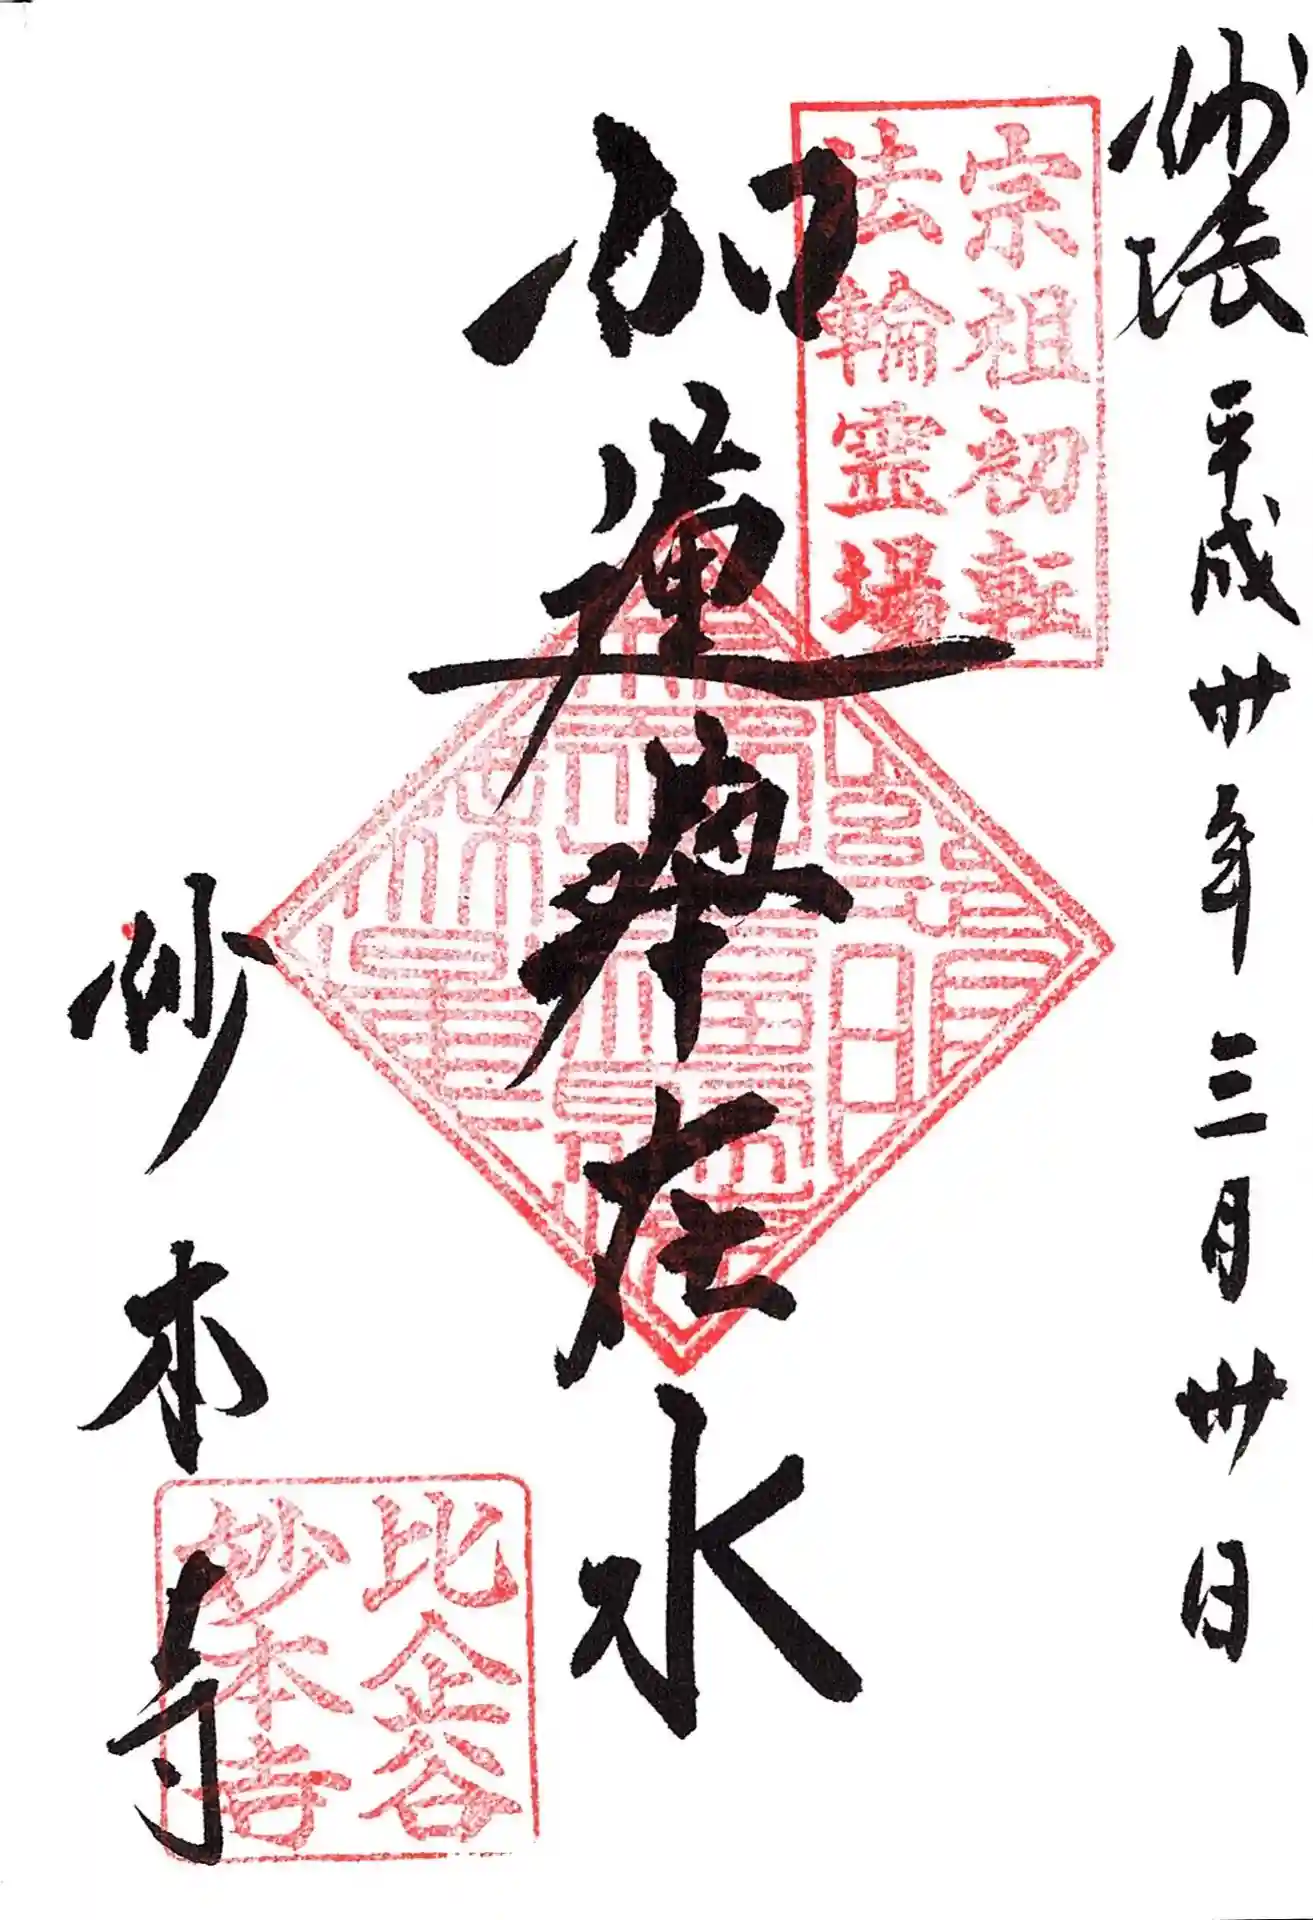 妙張 平成卅年三月卅日
宗祖初転
法輪霊場
如蓮華在水
妙本寺
比企谷
妙本寺